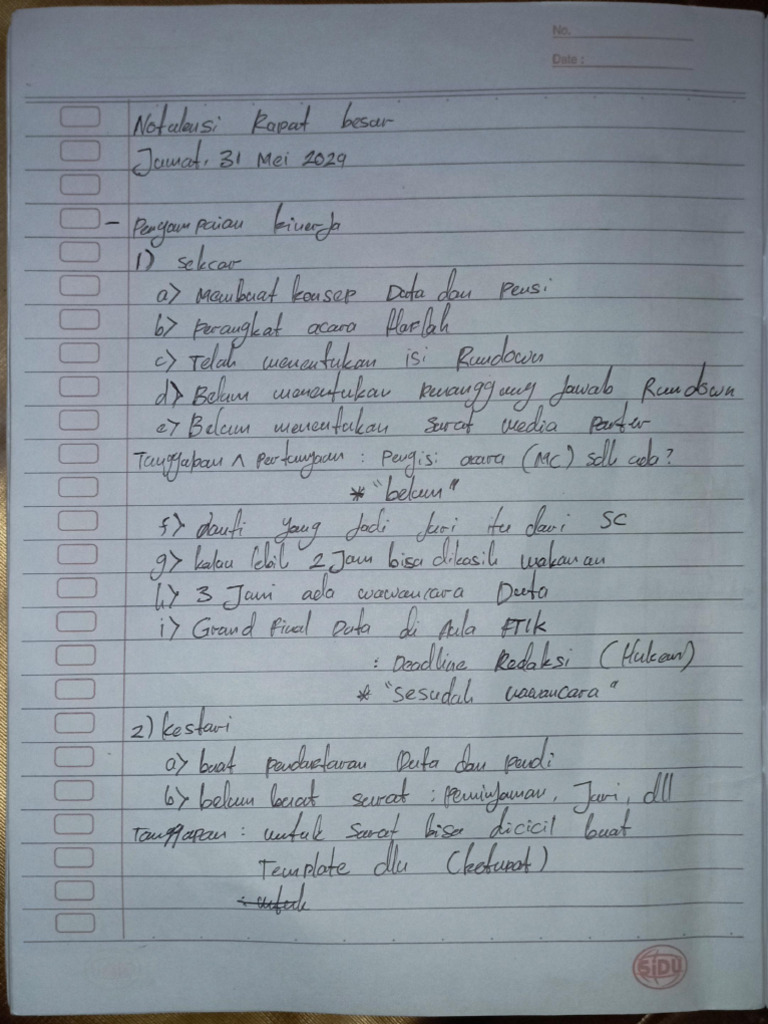 No.
Date :
Notulensi Rapat besar
Jumat, 31 Mei 2029
- Penyampaian kinerja
1) sekcar
a) Membuat konsep Duta dan Pensi
b) Perangkat acara Harlah
c) Telah menentukan isi Rundown
d) Belum menentukan penanggung Jawab Rundown
e) Belum menentukan surat media parter
Tanggapan ^ pertanyaan : Pengisi acara (MC) sdh ada?
* "belum"
f) danti yang Jadi Juri itu dari SC
g) kalau lebih 2 Jam bisa dikasih makanan
h) 3 Juni ada wawancara Duta
i) Grand Final Duta di Aula FTIK
: Deadline Redaksi (Hukum)
* "sesudah wawancara"
2) kestari
a) buat pendaftaran Duta dan
b) belum buat surat : peminjaman, Juri, dll
Tanggapan : untuk surat bisa dicicil buat
Template dlu (ketupat)
: untuk
SIDU